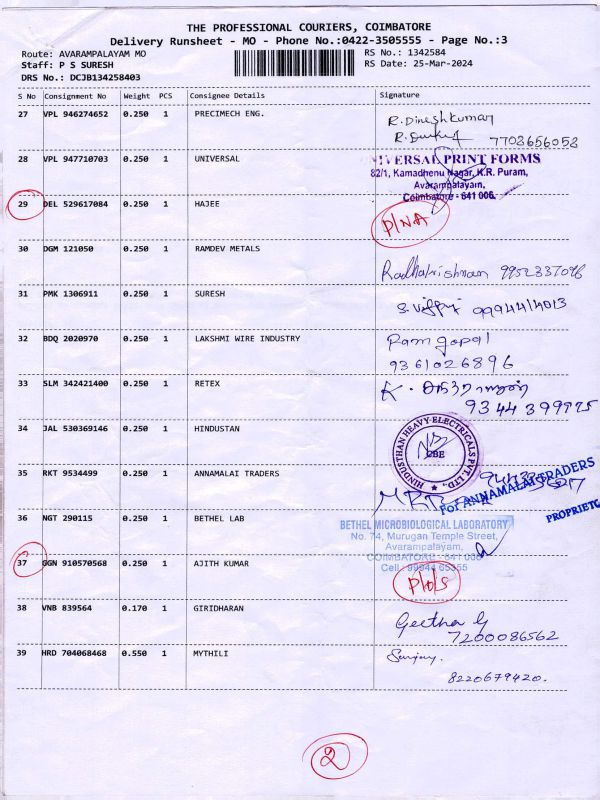 THE PROFESSIONAL COURIERS, COIMBATORE
Delivery Runsheet - MO - Phone No.:0422-3505555 - Page No.:3
Route: AVARAMPALAYAM MO RS No.: 1342584
Staff: P S SURESH RS Date: 25-Mar-2024
DRS No.: DCJB134258403
S No Consignment No Weight PCS Consignee Details Signature
27 VPL 946274652 0.250 1 PRECIMECH ENG. R. Dineshkumar
7708656058
28 VPL 947710703 0.250 1 UNIVERSAL IVERSAL PRINT FORMS
82/1, Kamadhenu Nagar, K.R. Puram,
Avarampalayam,
Coimbatore - 641 006.
29 DEL 529617084 0.250 1 HAJEE P/NA
30 DGM 121050 0.250 1 RAMDEV METALS
Radhakrishnan 9952337098
31 PMK 1306911 0.250 1 SURESH
32 BDQ 2020970 0.250 1 LAKSHMI WIRE INDUSTRY Ram gopal
9361026896
33 SLM 342421400 0.250 1 RETEX K.
34 JAL 530369146 0.250 1 HINDUSTAN HINDUSTHAN HEAVY ELECTRICALS PVT. LTD.,
CBE
35 RKT 9534499 0.250 1 ANNAMALAI TRADERS
For ANNAMALAI TRADERS
PROPRIETO
36 NGT 290115 0.250 1 BETHEL LAB BETHEL MICROBIOLOGICAL LABORATORY
No. 74, Murugan Temple Street,
Avarampalayam,
COIMBATORE - 641 006
Cell : 99944 65355
37 GGN 910570568 0.250 1 AJITH KUMAR P/D/S
38 VNB 839564 0.170 1 GIRIDHARAN Geetha G
7200086562
39 HRD 704068468 0.550 1 MYTHILI Sanjay.
8220679420.
2